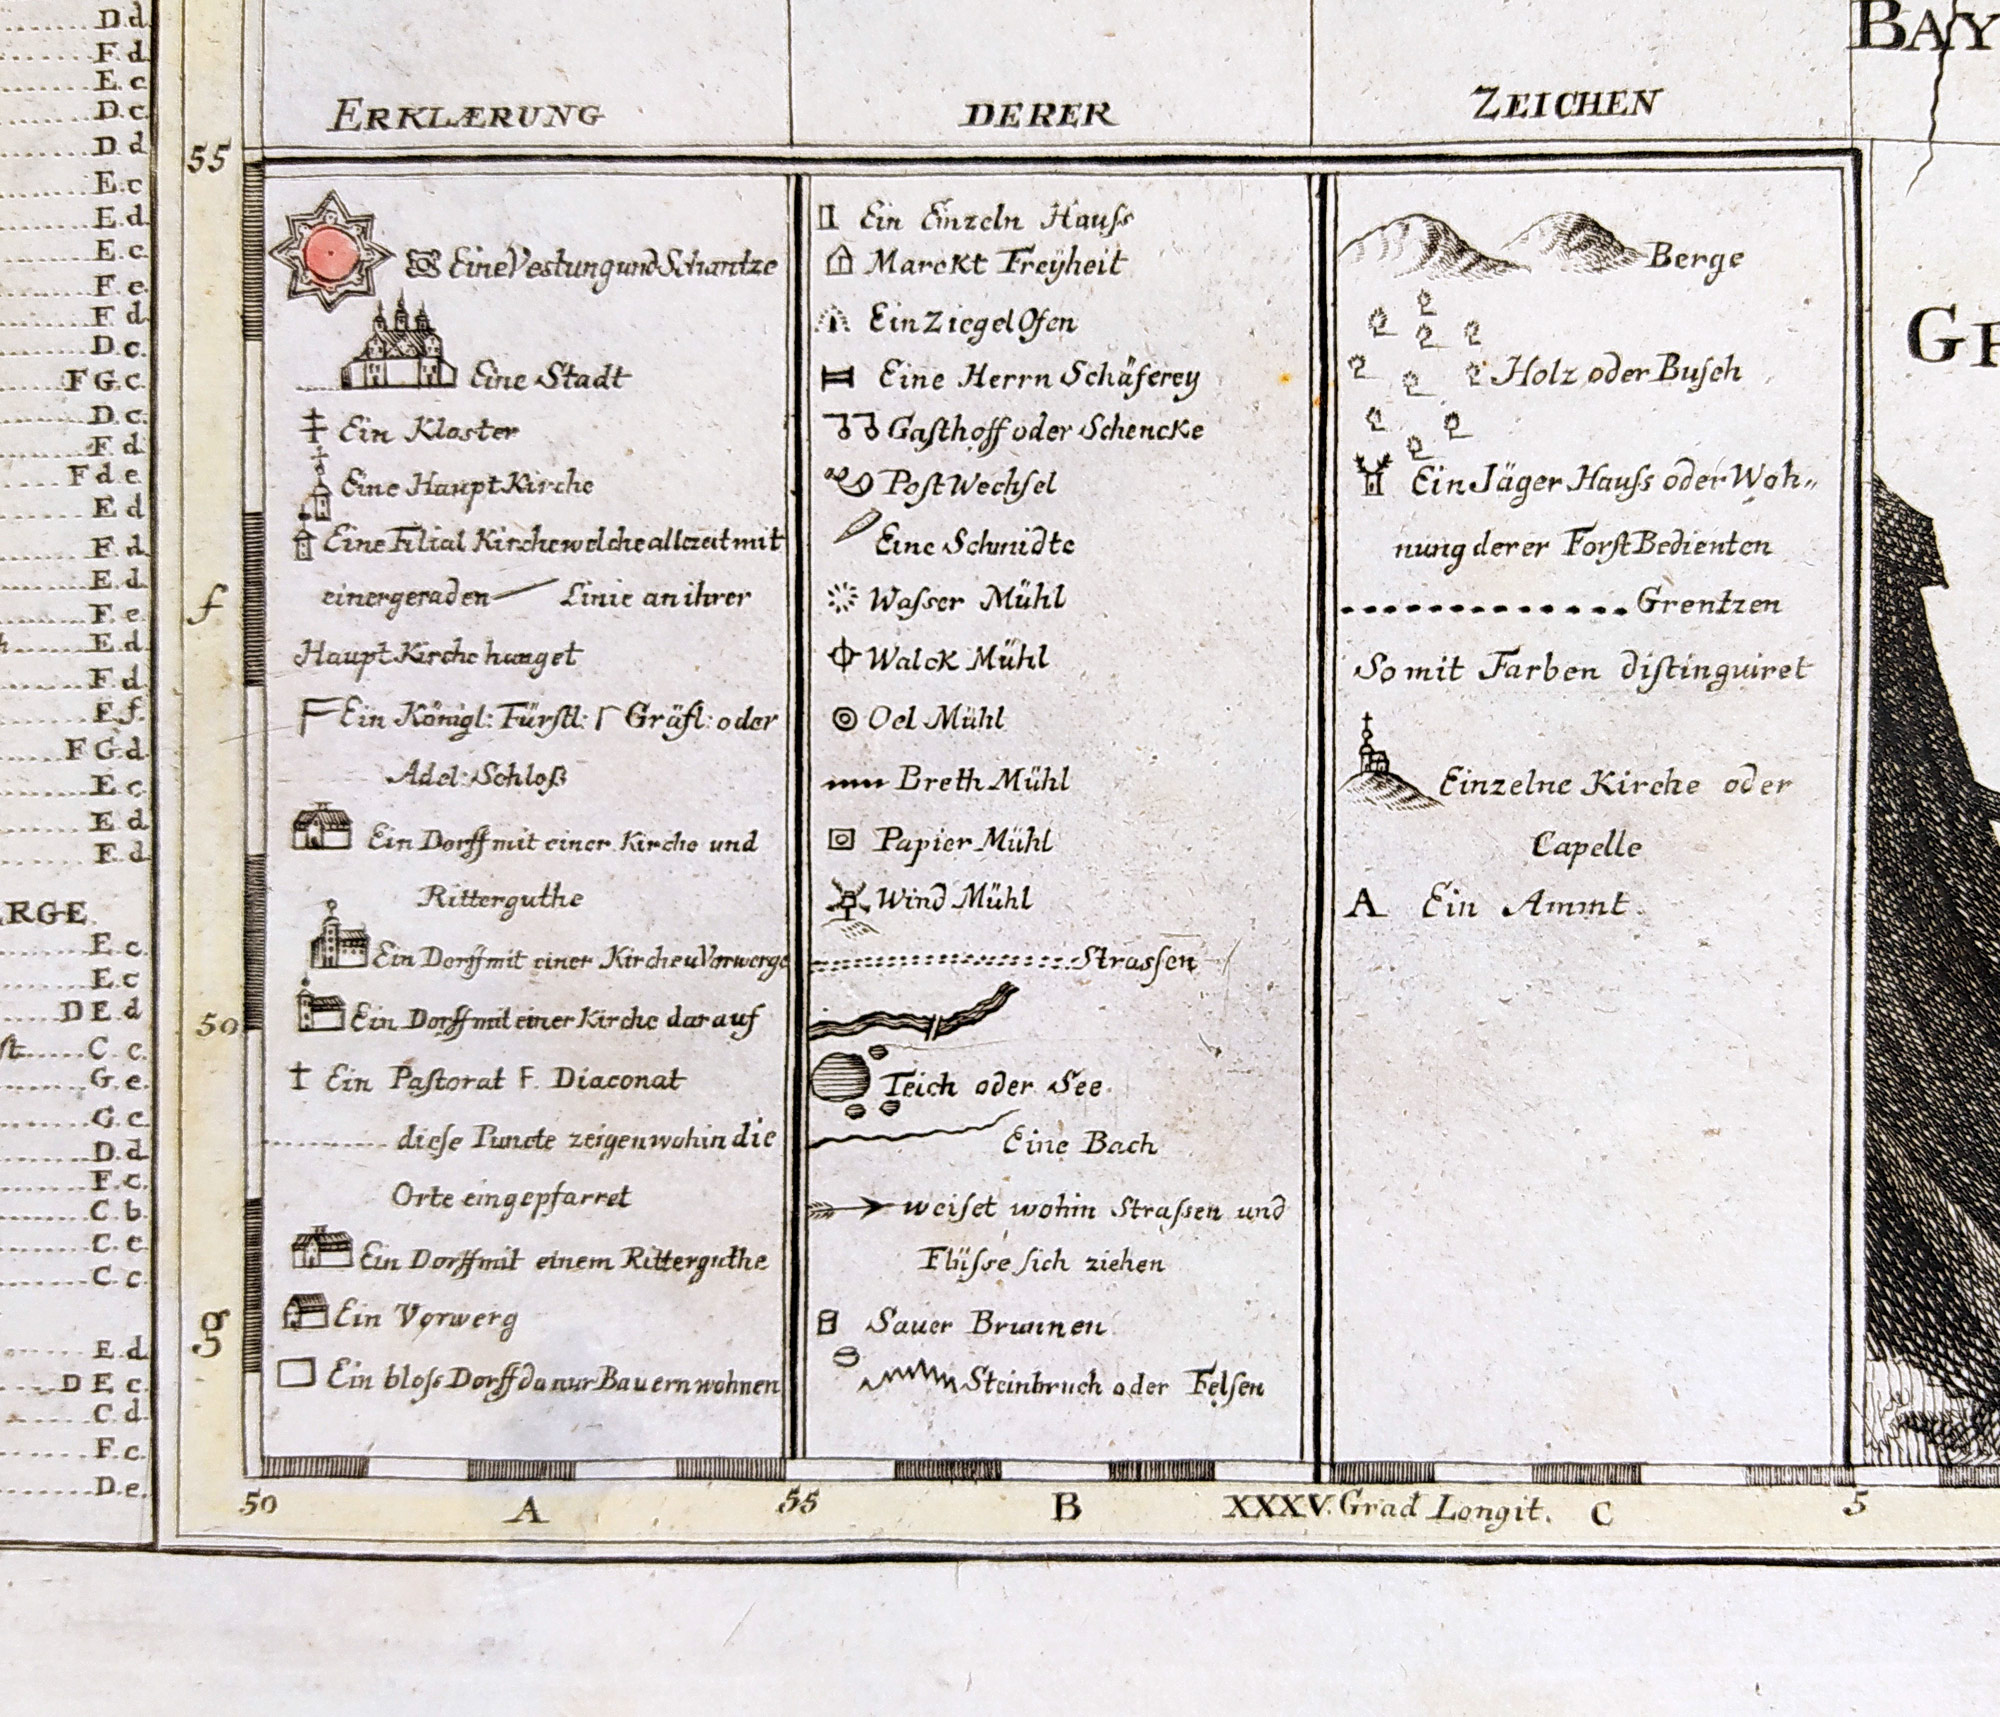 D.d.
F.d.
E.c.
D.c.
D.d.
E.c
E.d.
E.c.
F.e.
F.d.
D.c.
F G.c.
D.c.
F.d.
F d e.
E.d
F.d.
E.d
F.e.
E.d.
F.d.
E.f.
F G.d.
E.c.
E.d
E.d
RGE.
E.c.
E.c
D E.d
C.c.
G.e.
G.c.
D.d
F.c.
C.b.
C.e.
C.c.
E.d
D E.c.
C.d.
F.c.
D.e.
ERKLÆRUNG DERER ZEICHEN
BAY
GR
55
f
50
g
Eine Vestung und Schantze
Eine Stadt
Ein Kloster
Eine Haupt Kirche
Eine Filial Kirche welche allezeit mit
einer geraden Linie an ihrer
Haupt Kirche hanget
Ein Königl: Fürstl: Γ Gräfl: oder
Adel: Schloß
Ein Dorff mit einer Kirche und
Ritterguthe
Ein Dorff mit einer Kirche u Vorwerge
Ein Dorff mit einer Kirche darauf
Ein Pastorat F. Diaconat
diese Puncte zeigen wohin die
Orte eingepfarret
Ein Dorff mit einem Ritterguthe
Ein Vorwerg
Ein bloss Dorff da nur Bauern wohnen
Ein Einzeln Hauss
Marckt Freÿheit
Ein Ziegel Ofen
Eine Herrn Schäferey
Gasthoff oder Schencke
Post Wechsel
Eine Schmidte
Wasser Mühl
Walck Mühl
Oel Mühl
Breth Mühl
Papier Mühl
Wind Mühl
Strassen
Teich oder See.
Eine Bach
weiset wohin Strassen und
Flüsse sich ziehen
Sauer Brunnen
Steinbruch oder Felsen
Berge
Holz oder Busch
Ein Jäger Hauss oder Woh„
nung derer Forst Bedienten
Grentzen
So mit Farben distinguiret
Einzelne Kirche oder
Capelle
A Ein Ammt.
50 A 55 B XXXV. Grad Longit. C 5